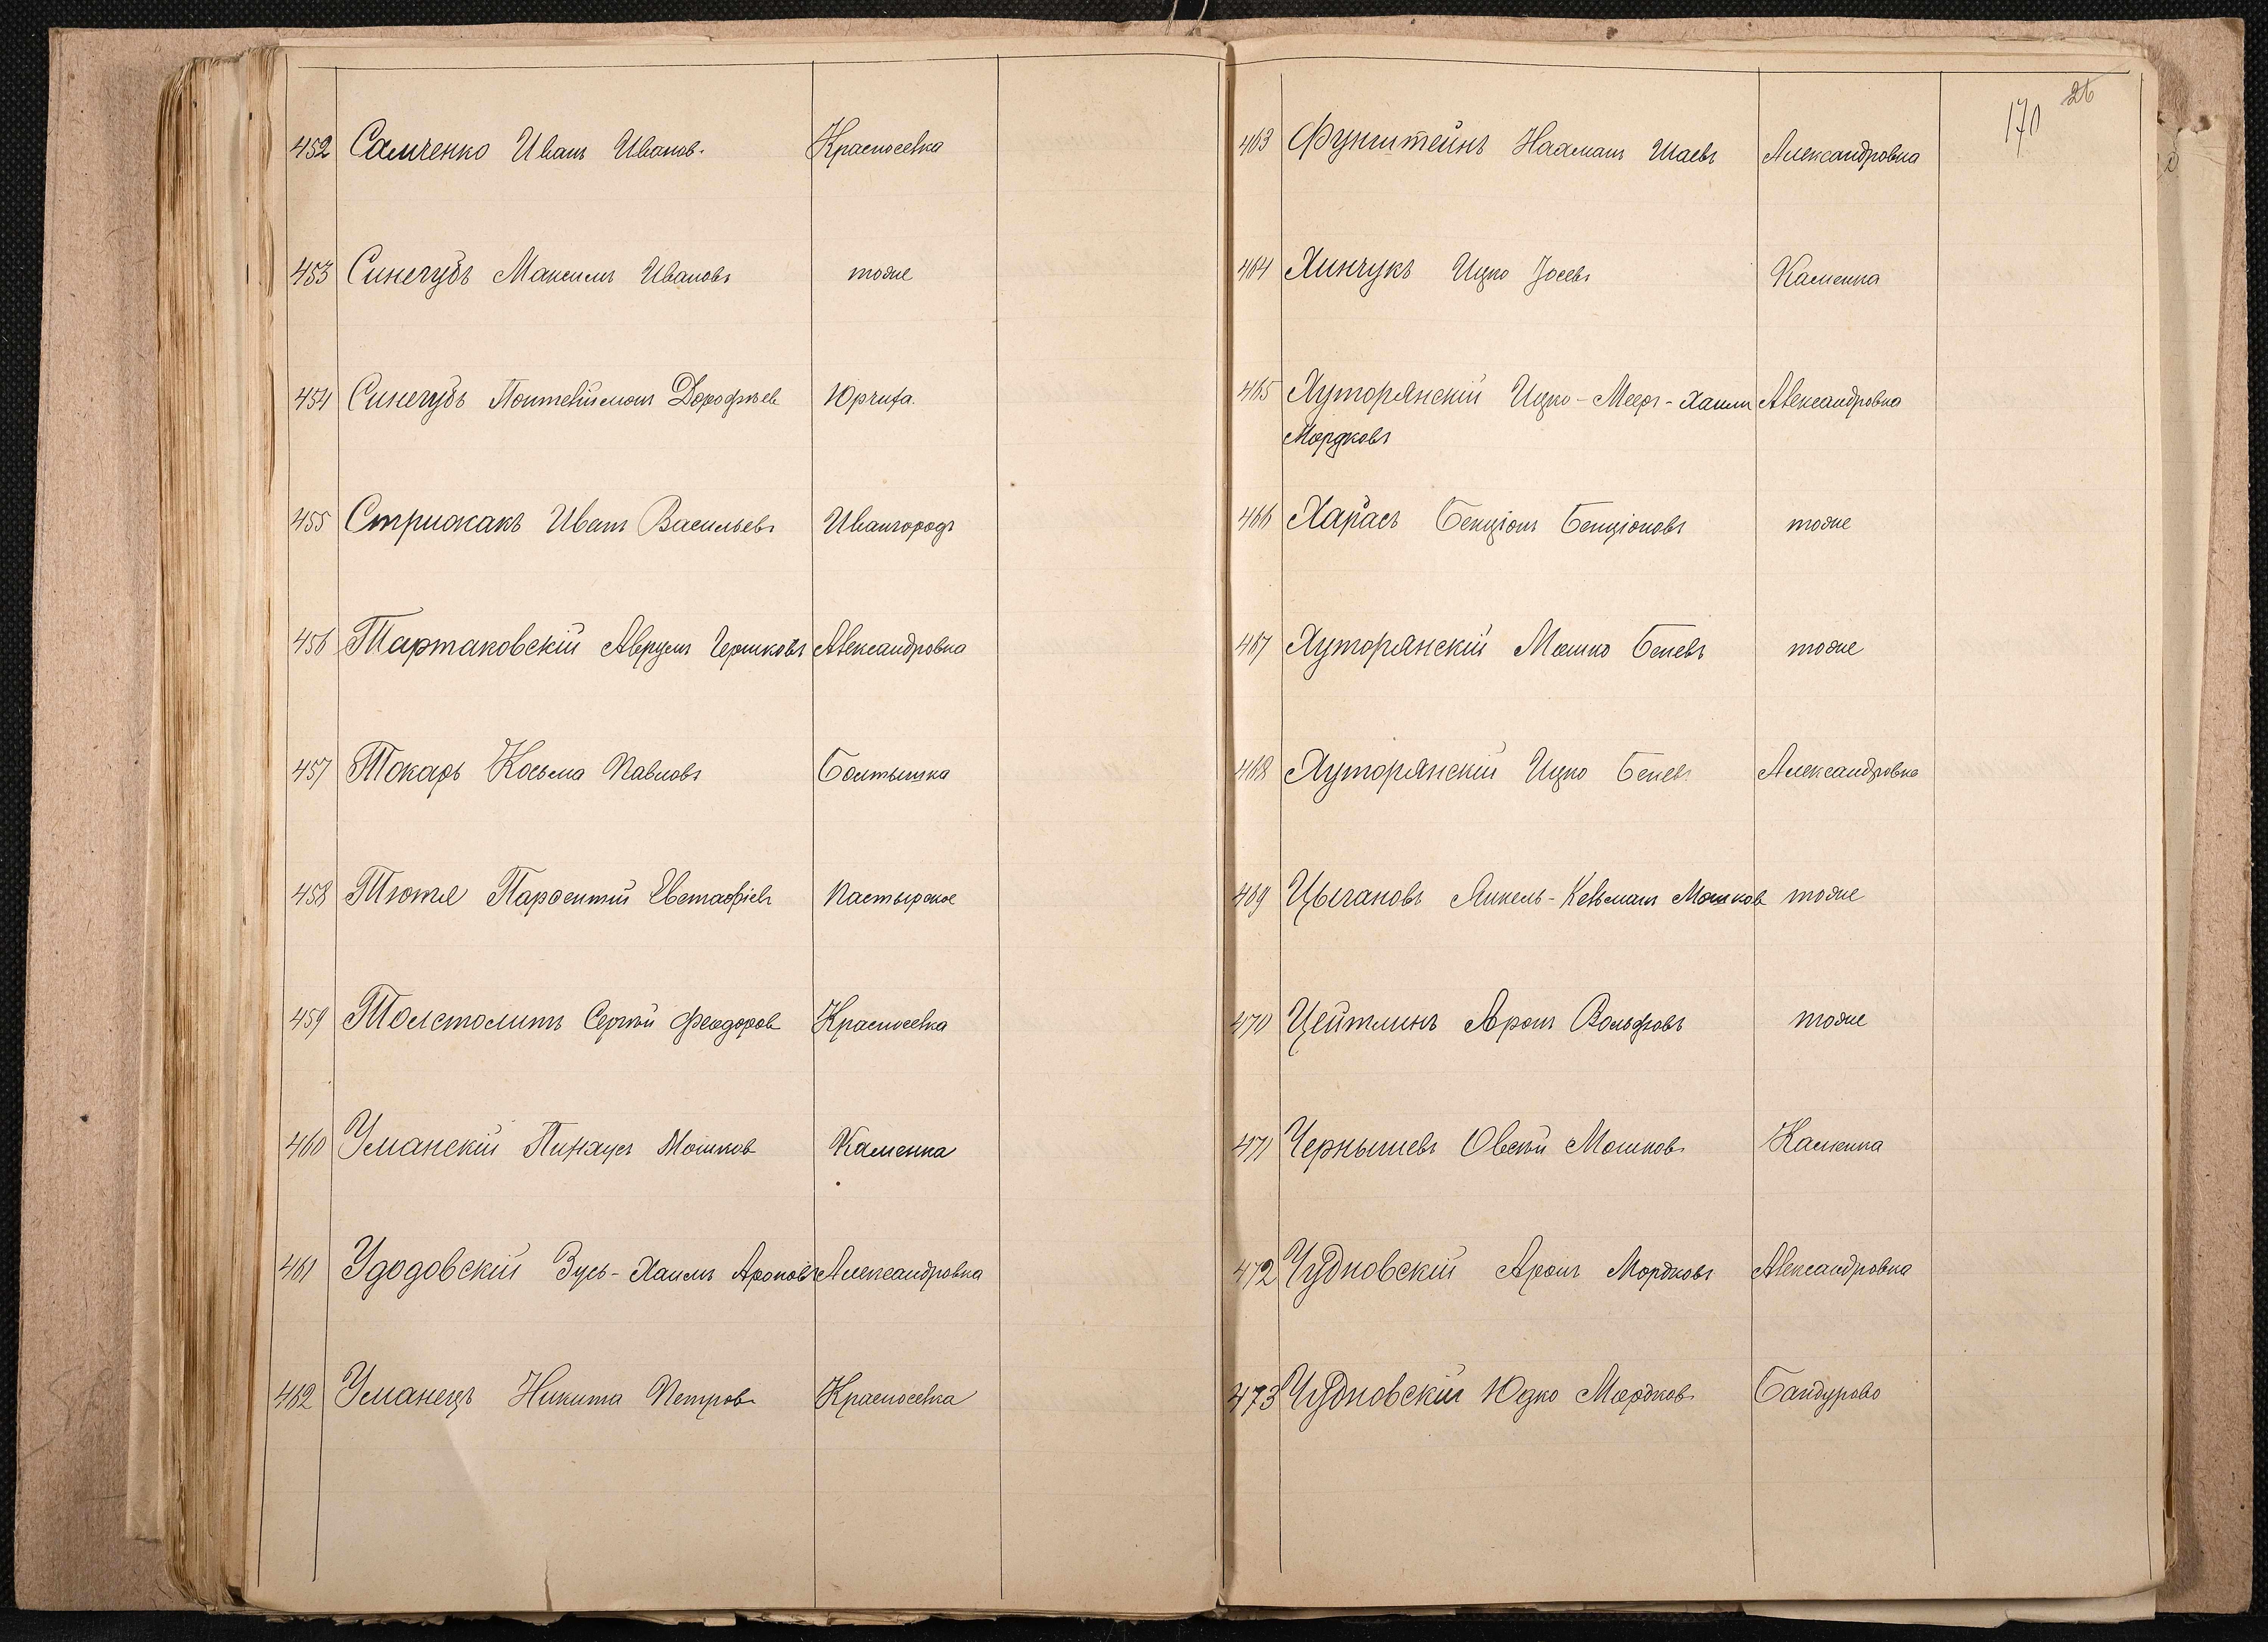 452 Самченко Иванъ Иванов. Красносѣлка
453 Синегубъ Максимъ Ивановъ тоже
454 Синегубъ Понтелѣимонъ Дорофѣев Юрчиха.
455 Стрижакъ Иванъ Васильевъ Ивангородъ
456 Тартаковскій Аврумъ Гершковъ Александровка
457 Токарь Косьма Павловъ Болтышка
458 Тютя Парфентій Евстафіевъ Пастырское
459 Толстолитъ Сергѣй Феодоров Красносѣлка
460 Уманскій Пинхусъ Мошков Каменка
461 Удодовскій Зусь-Хаимъ Ароновъ Александровка
462 Уманецъ Никита Петров Красносѣлка
170 26
463 Фунштейнъ Нааманъ Шаевъ Александровка
464 Хинчукъ Ицко Іосевъ Каменка
465 Хуторянскій Ицко-Меер-Хаим Александровка
Мордковъ
466 Харасъ Бенціонъ Бенціоновъ тоже
467 Хуторянскій Мошко Беневъ тоже
468 Хуторянскій Ицко Беневъ Александровка
469 Цыгановъ Янкель-Кельманъ Мошков тоже
470 Цейтлинъ Аронъ Вольфовъ тоже
471 Чернышевъ Овсѣй Мошков Каменка
472 Чудновскій Аронъ Мордковъ Александровка
473 Чудновскій Юдко Мордков Бандурово